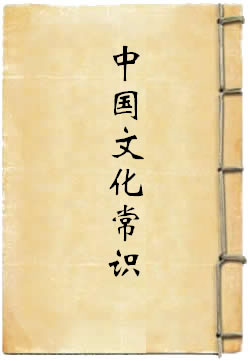 中国文化常识